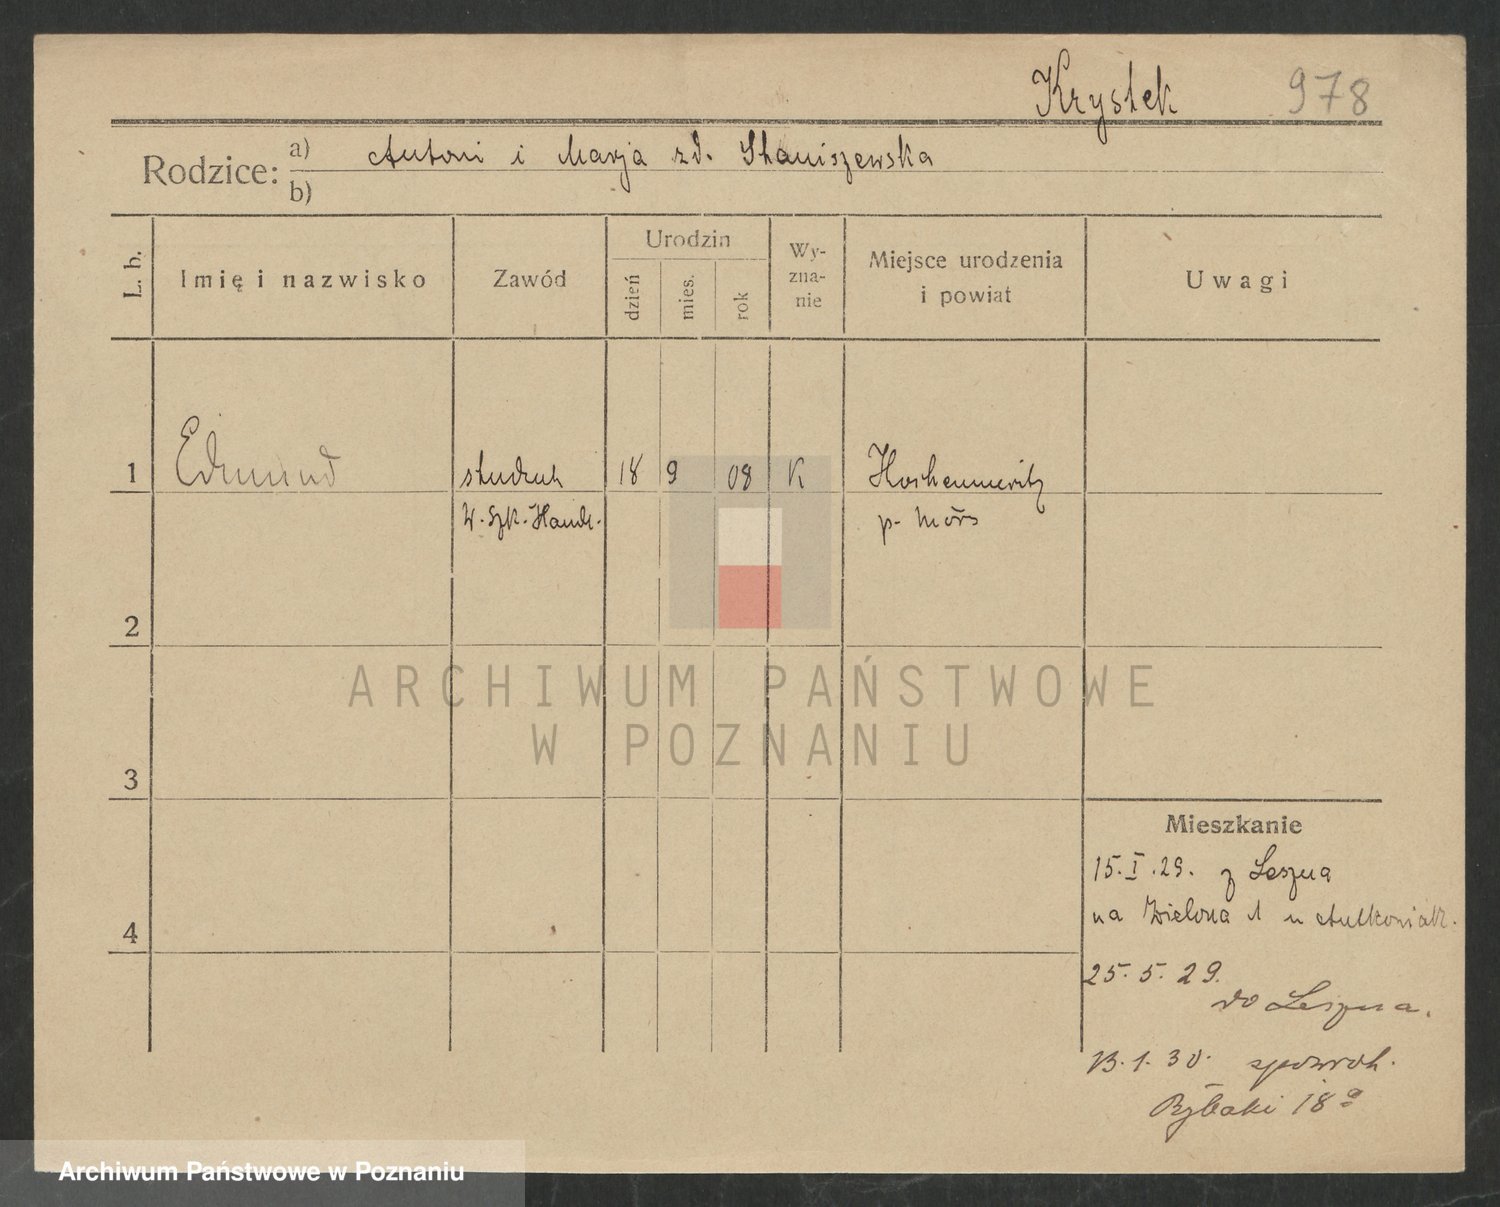 Krystek 978
Rodzice: a) Antoni i Marja zd. Staniszewska
b)
L. b. Imię i nazwisko Zawód Urodzin dzień mies. rok Wy-zna-nie Miejsce urodzenia i powiat Uwagi
1 Edmund student 18 9 08 K
W. Szk. Handl. p. Mörs
2
ARCHIWUM PAŃSTWOWE
W POZNANIU
3
Mieszkanie
15.I.29. z Leszna
4 na Zielona 1 u
25.5.29.
do Leszna.
13.1.30.
Rybaki 18a
Archiwum Państwowe w Poznaniu